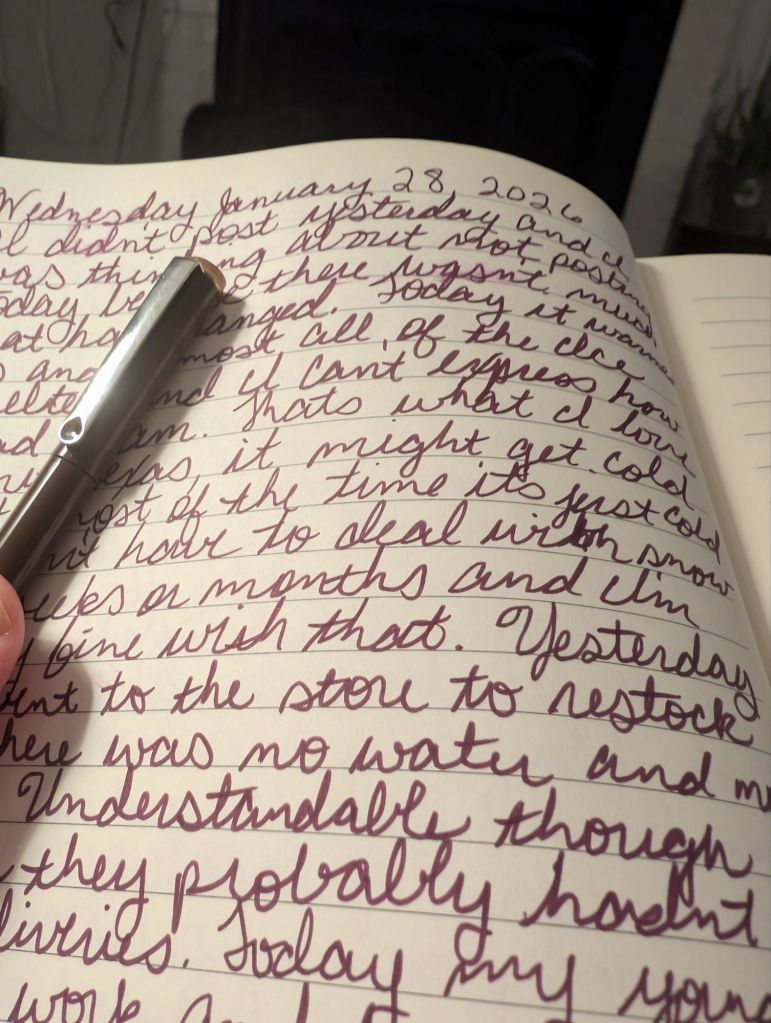 Wednesday January 28, 2026
I didnt post yesterday and I
was thin ng about not posting
oday be e there wasnt much
at ha anged. Today it warme
and most all of the ice
elte nd I cant express how
ad am. Thats what I love
exas, it might get cold
most of the time its just cold
nt have to deal with snow
eeks or months and Im
fine wish that. Yesterday
ent to the store to restock
here was no water and m
Understandable though
they probably hasnt
liveries. Today my young
work and